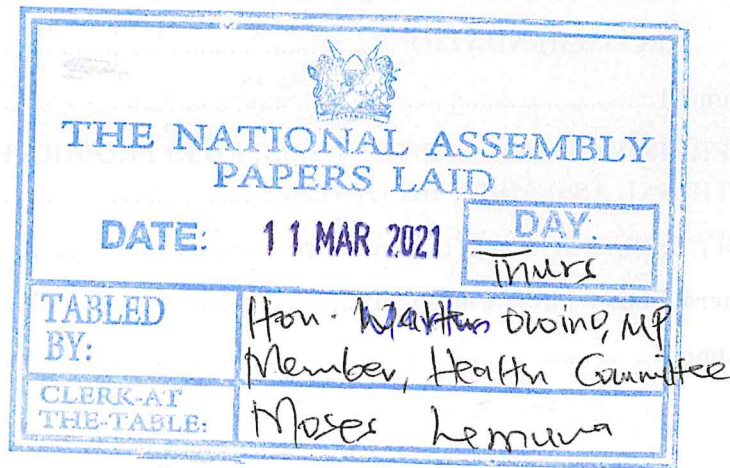 THE NATIONAL ASSEMBLY
PAPERS LAID
DATE: 11 MAR 2021
DAY:
Thurs
TABLED
BY:
Hon. Martin Owino, MP
Member, Health Committee
CLERK-AT
THE-TABLE:
Moses Lemuna